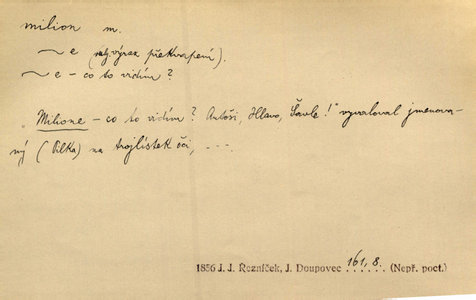 milion m.
~ e (ndj. výraz překvapení).
~ e - co to vidím?
"Milione - co to vidím? Antoši, Hlavo, Šavle!" vyvaloval jmenova-
ný (Pilka) na trojlístek oči, ---
1856 J. J. Řezníček, J. Doupovec 161, 8. (Nepř. poct.)